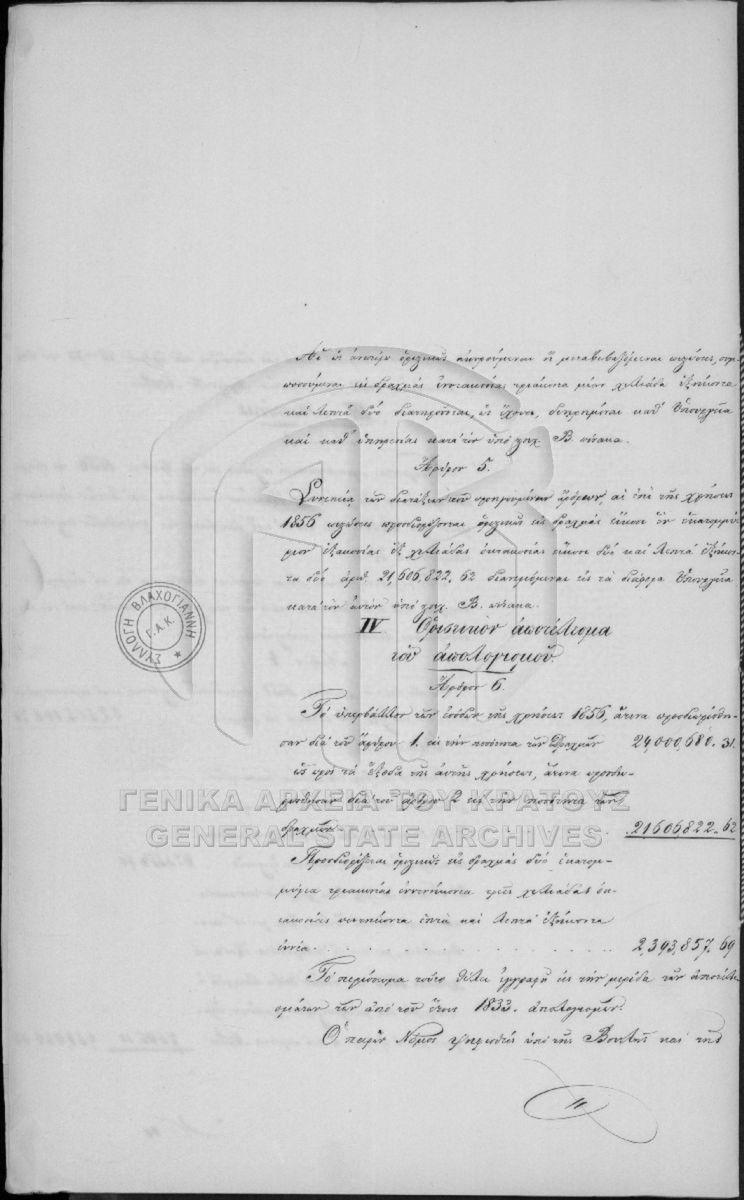 Αἱ ὡς ἀνωτέρω ὁριστικῶς ἀκυρούμεναι ἢ μεταβιβαζόμεναι πιστώσεις, συμ-
ποσούμεναι εἰς δραχμὰς ἐννεακοσίας τριάκοντα μίαν χιλιάδα ἑξήκοντα
καὶ λεπτὰ δύο διατηροῦνται, ὡς ἔχουσι, διῃρημέναι καθ' Ὑπουργεῖα
καὶ καθ' ὑπηρεσίας κατὰ τὸν ὑπὸ στοιχ. Β. πίνακα.
Ἄρθρον 5.
Συνεπείᾳ τῶν διατάξεων τῶν προηγουμένων ἄρθρων, αἱ ἐπὶ τῆς χρήσεως
1856 πιστώσεις προσδιορίζονται ὁριστικῶς εἰς δραχμὰς εἴκοσι ἓν ἑκατομμύ-
ριον ἑξακοσίας ἓξ χιλιάδας ὀκτακοσίας εἴκοσι δύο καὶ λεπτὰ ἑξήκον-
τα δύο ἀριθ. 21,606,822,62 διανεμόμεναι εἰς τὰ διάφορα Ὑπουργεῖα
κατὰ τὸν αὐτὸν ὑπὸ στοιχ. Β. πίνακα.
IV Ὁριστικὸν ἀποτέλεσμα
τοῦ ἀπολογισμοῦ.
Ἄρθρον 6.
Τὸ ὑπερβάλλον τῶν ἐσόδων τῆς χρήσεως 1856, ἅτινα προσδιωρίσθη-
σαν διὰ τοῦ ἄρθρου 1. εἰς τὴν ποσότητα τῶν Δραχμῶν 24,000,680. 31.
ὡς πρὸς τὰ ἔξοδα τῆς αὐτῆς χρήσεως, ἅτινα προσδιω-
ρίσθησαν διὰ τοῦ ἄρθρου 2 εἰς τὴν ποσότητα τῶν
δραχμῶν. . . . 21606822. 62
Προσδιορίζεται ὁριστικῶς εἰς δραχμὰς δύο ἑκατομ-
μύρια τριακοσίας ἐννενήκοντα τρεῖς χιλιάδας ὀκ-
τακοσίας πεντήκοντα ἑπτὰ καὶ λεπτὰ ἑξήκοντα
ἐννέα. . . . . . . . . . . 2,393,857. 69
Τὸ περίσσευμα τοῦτο θέλει ἐγγραφῆ εἰς τὴν μερίδα τῶν ἀποτελε-
σμάτων τῶν ἀπὸ τοῦ ἔτους 1833. ἀπολογισμῶν.
Ὁ παρὼν Νόμος ψηφισθεὶς ὑπὸ τῆς Βουλῆς καὶ τῆς
ΣΥΛΛΟΓΗ ΒΛΑΧΟΓΙΑΝΝΗ
Γ.Α.Κ.
ΓΕΝΙΚΑ ΑΡΧΕΙΑ ΤΟΥ ΚΡΑΤΟΥΣ
GENERAL STATE ARCHIVES